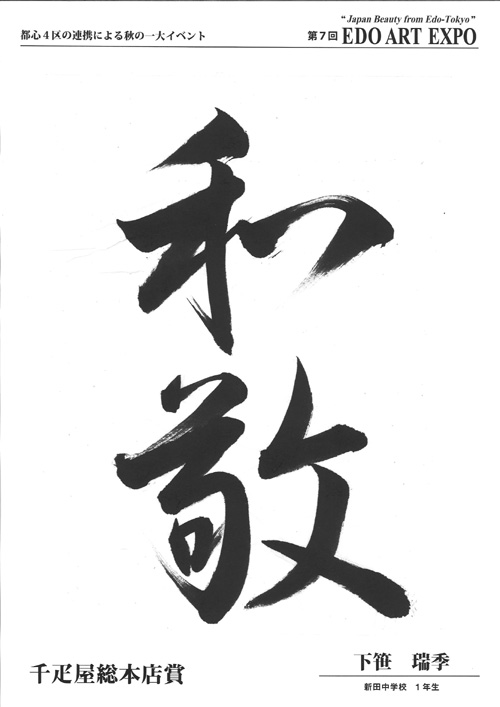 都心4区の連携による秋の一大イベント
"Japan Beauty from Edo-Tokyo"
第7回 EDO ART EXPO
和
敬
千疋屋総本店賞
下笹 瑞季
新田中学校 1年生